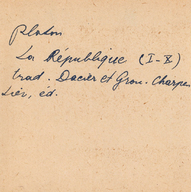 Platon
La République (I-X)
trad. Dacier et Grou. Charpen
tier, éd.